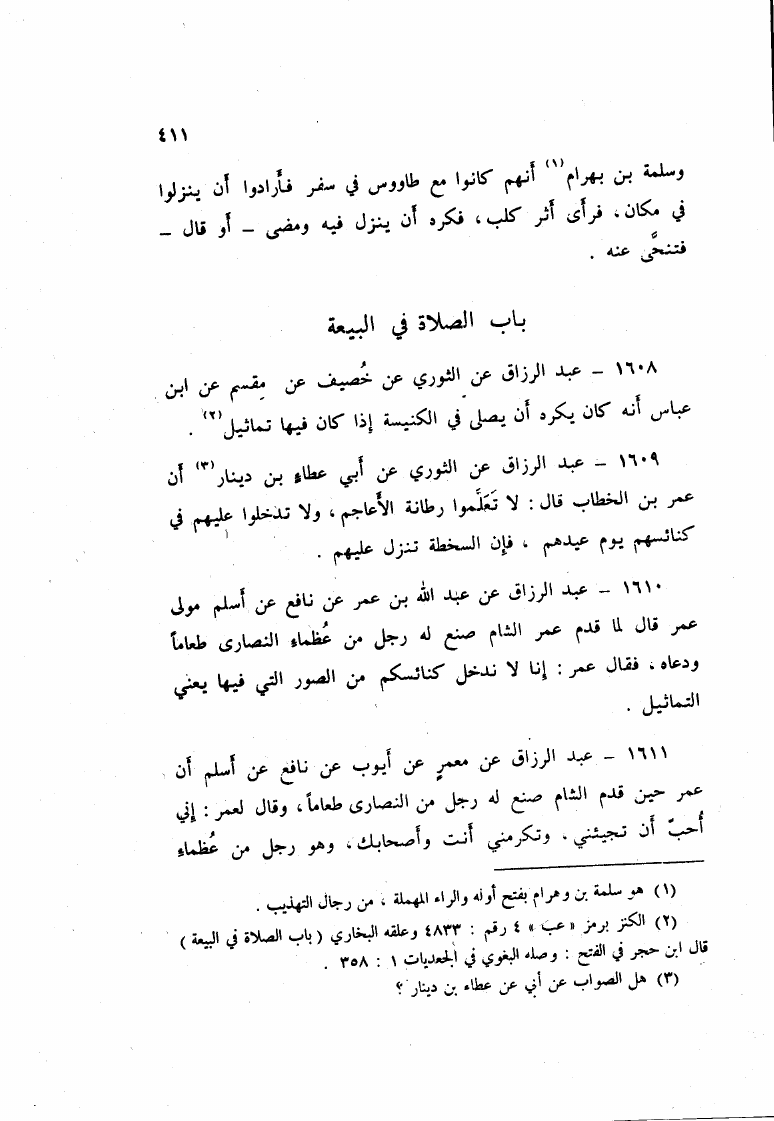 ٤١١
وسلمة بن بهرام(١) أنهم كانوا مع طاووس في سفر فأرادوا أن ينزلوا
في مكان، فرأى أثر كلب، فكره أن ينزل فيه ومضى – أو قال –
فتنحَّى عنه .
باب الصلاة في البيعة
١٦٠٨ – عبد الرزاق عن الثوري عن خُصيف عن مِقسم عن ابن
عباس أنه كان يكره أن يصلى في الكنيسة إذا كان فيها تماثيل(٢) .
١٦٠٩ – عبد الرزاق عن الثوري عن أبي عطاءِ بن دينار(٣) أن
عمر بن الخطاب قال : لا تَعَلَّموا رطانة الأَعاجم ، ولا تدخلوا عليهم في
كنائسهم يوم عيدهم ، فإن السخطة تنزل عليهم .
١٦١٠ – عبد الرزاق عن عبد الله بن عمر عن نافع عن أسلم مولى
عمر قال لما قدم عمر الشام صنع له رجل من عُظماءِ النصارى طعاماً
ودعاه ، فقال عمر : إنا لا ندخل كنائسكم من الصور التي فيها يعني
التماثيل .
١٦١١ – عبد الرزاق عن معمرٍ عن أيوب عن نافع عن أسلم أن
عمر حين قدم الشام صنع له رجل من النصارى طعاماً ، وقال لعمر : إني
أُحبّ أن تجيئني ، وتكرمني أنت وأصحابك ، وهو رجل من عُظماءِ
(١) هو سلمة بن وهرام بفتح أوله والراء المهملة ، من رجال التهذيب .
(٢) الكنز برمز « عب » ٤ رقم : ٤٨٣٣ وعلقه البخاري ( باب الصلاة في البيعة )
قال ابن حجر في الفتح : وصله البغوي في الجعديات ١ : ٣٥٨ .
(٣) هل الصواب عن أبي عن عطاء بن دينار ؟